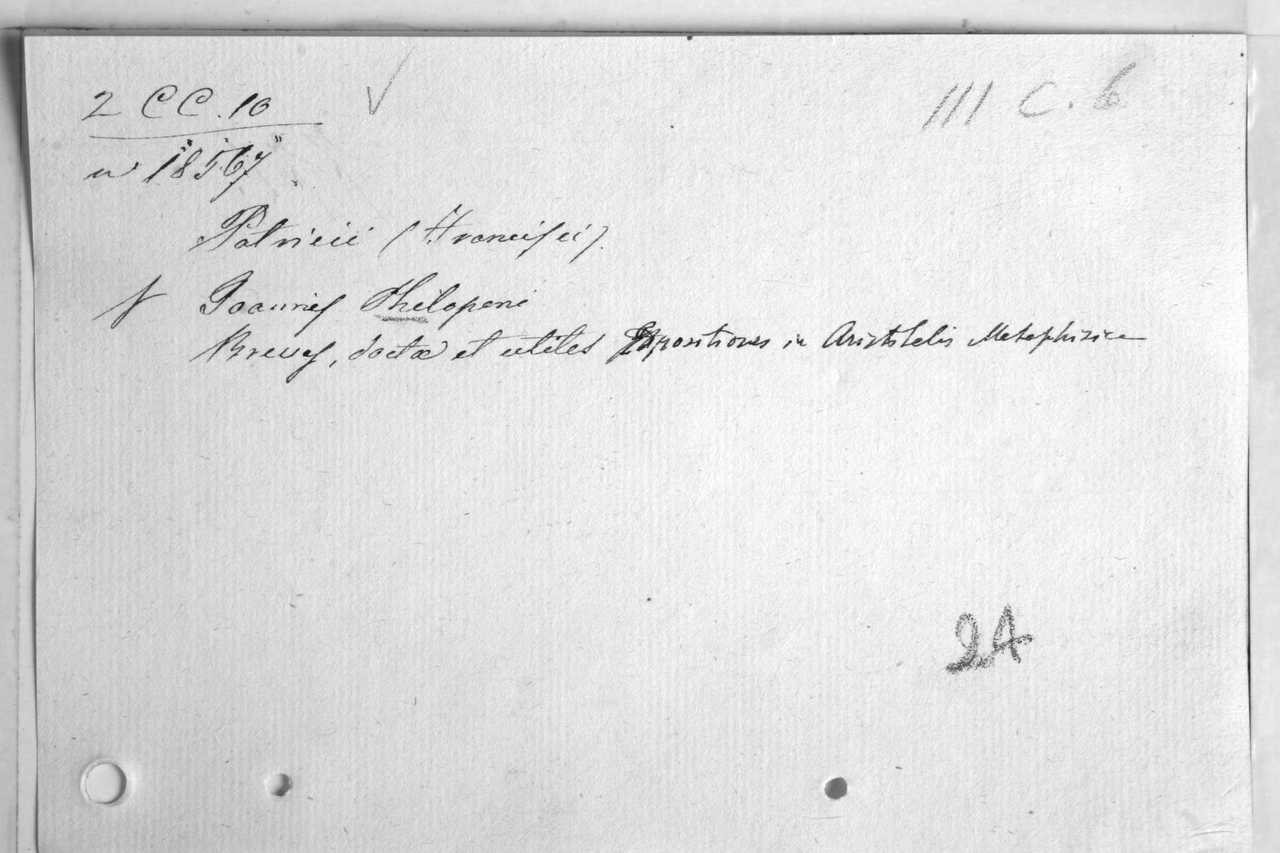 2 CC. 10
III C. 6
n° 18567
Patricii (Francisci).
Joannes Philoponi
Breves, doctæ et utiles Expositiones in Aristotelis Metaphizica
24